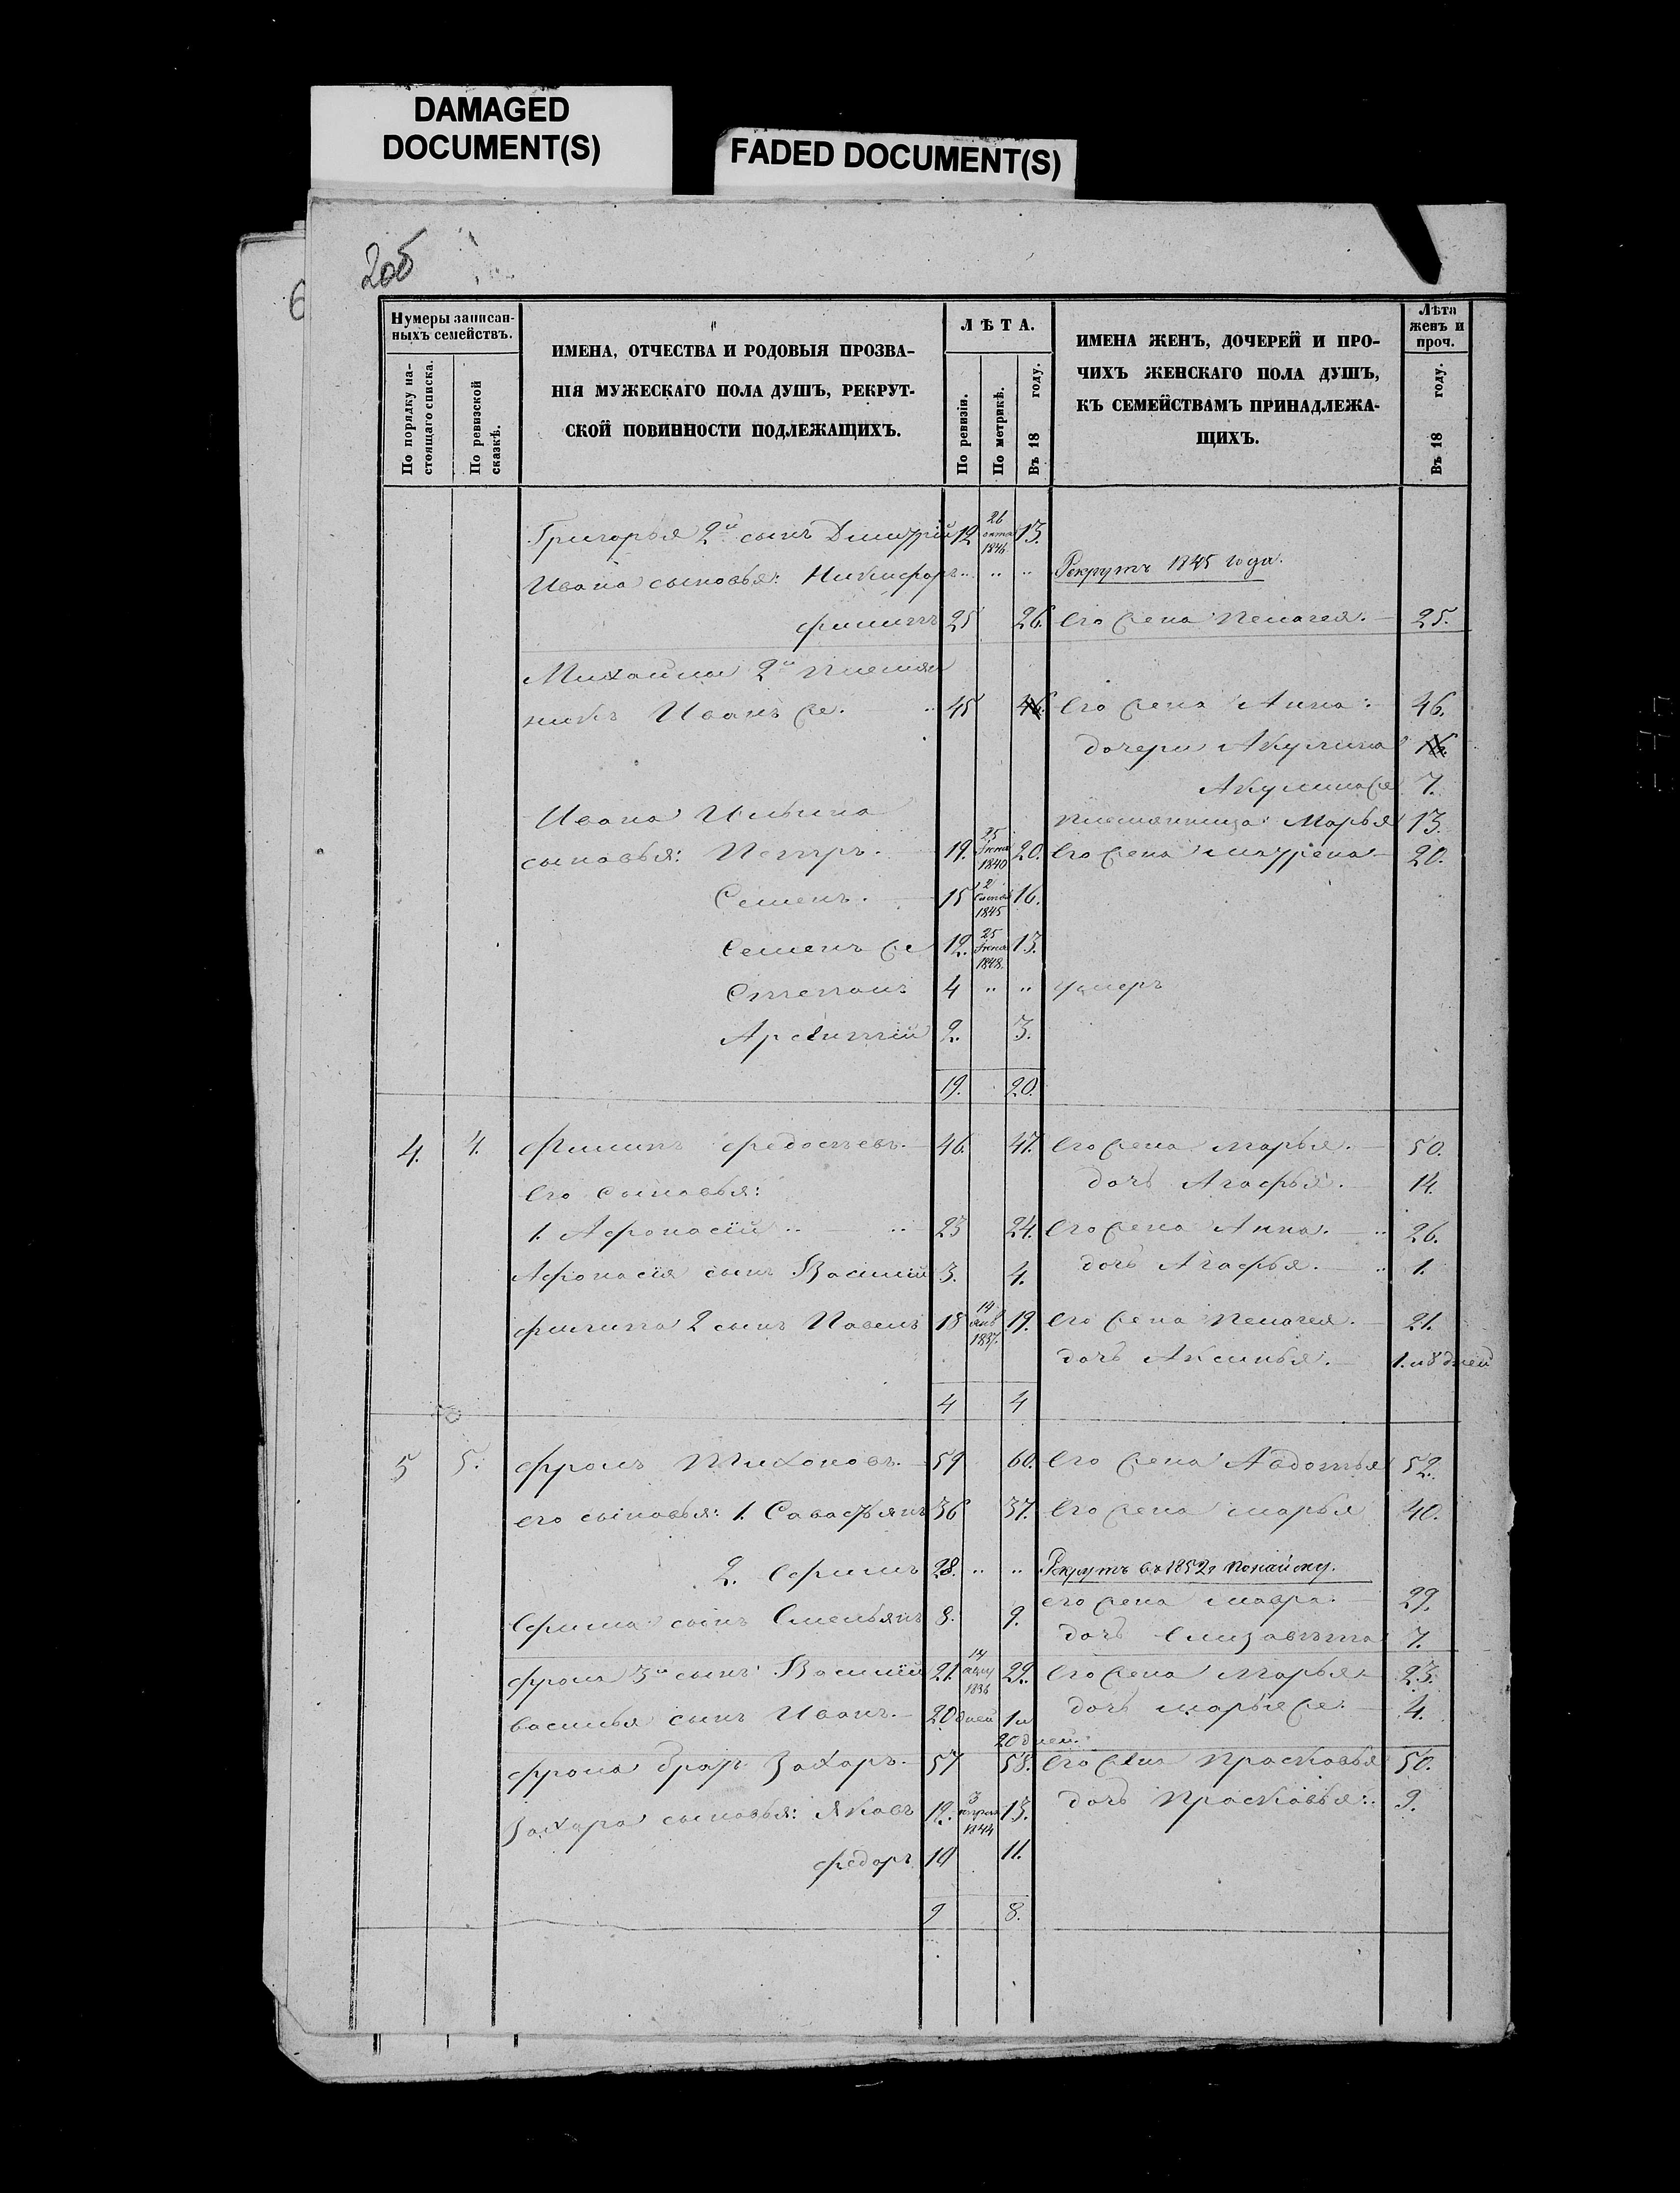 DAMAGED
DOCUMENT(S)
FADED DOCUMENT(S)
206
Нумеры записан-
ныхъ семействъ.
По порядку на-
стоящаго списка.
По ревизской
сказкѣ.
ИМЕНА, ОТЧЕСТВА И РОДОВЫЯ ПРОЗВА-
НІЯ МУЖЕСКАГО ПОЛА ДУШЪ, РЕКРУТ-
СКОЙ ПОВИННОСТИ ПОДЛЕЖАЩИХЪ.
ЛѢТА.
По ревизіи.
По метрикѣ.
Въ 18 году.
ИМЕНА ЖЕНЪ, ДОЧЕРЕЙ И ПРО-
ЧИХЪ ЖЕНСКАГО ПОЛА ДУШЪ,
КЪ СЕМЕЙСТВАМЪ ПРИНАДЛЕЖА-
ЩИХЪ.
Лѣта
женъ и
проч.
Въ 18 году.
Григорья 2й сынъ Димитрій 12 26 окта 1846 13.
Ивана сыновья: Никифоръ .. .. .. Рекрутъ 1845 года.
Филиппъ 25 26. Его жена Пелагея. 25.
Михайлы 2й племян
никъ Иванъ же. 45 46. Его жена Анна. 46.
дочери Акулина
Акулина же 7.
Ивана Ильина племянница Марья 13.
сыновья: Петръ. 19. 25 Іюня 1840 20. Его жена 20.
Семенъ. 15 2 1845 16.
Семенъ же 12. 25 Іюня 1848. 13.
Степанъ 4 .. .. умеръ
2. 3.
19. 20.
4. 4. Филипъ Федосѣевъ. 46. 47. Его жена Марья. 50.
Его сыновья: дочь Агафья. 14.
1. Афонасій .. .. 23 24. Его жена Анна. 26.
Афонасія сынъ Василій 3. 4. дочь Агафья. 1.
Филипа 2 сынъ Павелъ 18 14 янв 1837. 19. Его жена Пелагея. 21.
дочь Аксинья. 1. и 8 дней
4 4
5 5. Фролъ Тихоновъ. 59 60. Его жена Авдотья 52.
Его сыновья: 1. Савастьянъ 36 37. Его жена Марья 40.
2. Ефимъ 28. .. .. Рекрутъ въ 1852 г. по найому.
Ефима сынъ Емельянъ 8. 9. его жена Мавра 29.
дочь Елизавѣта 7.
Фрола 3й сынъ Василій 21. 14 1836 22. Его жена Марья 23.
Василья сынъ Иванъ. 20 дней 1 и 20 дней. дочь Марья же. 4.
Фрола братъ Захаръ. 57 58. Его жена Прасковья 50.
Захара сыновья: Яковъ 12. 3 апреля 1844 13. дочь Прасковья. 9.
Федоръ 10 11.
9 8.